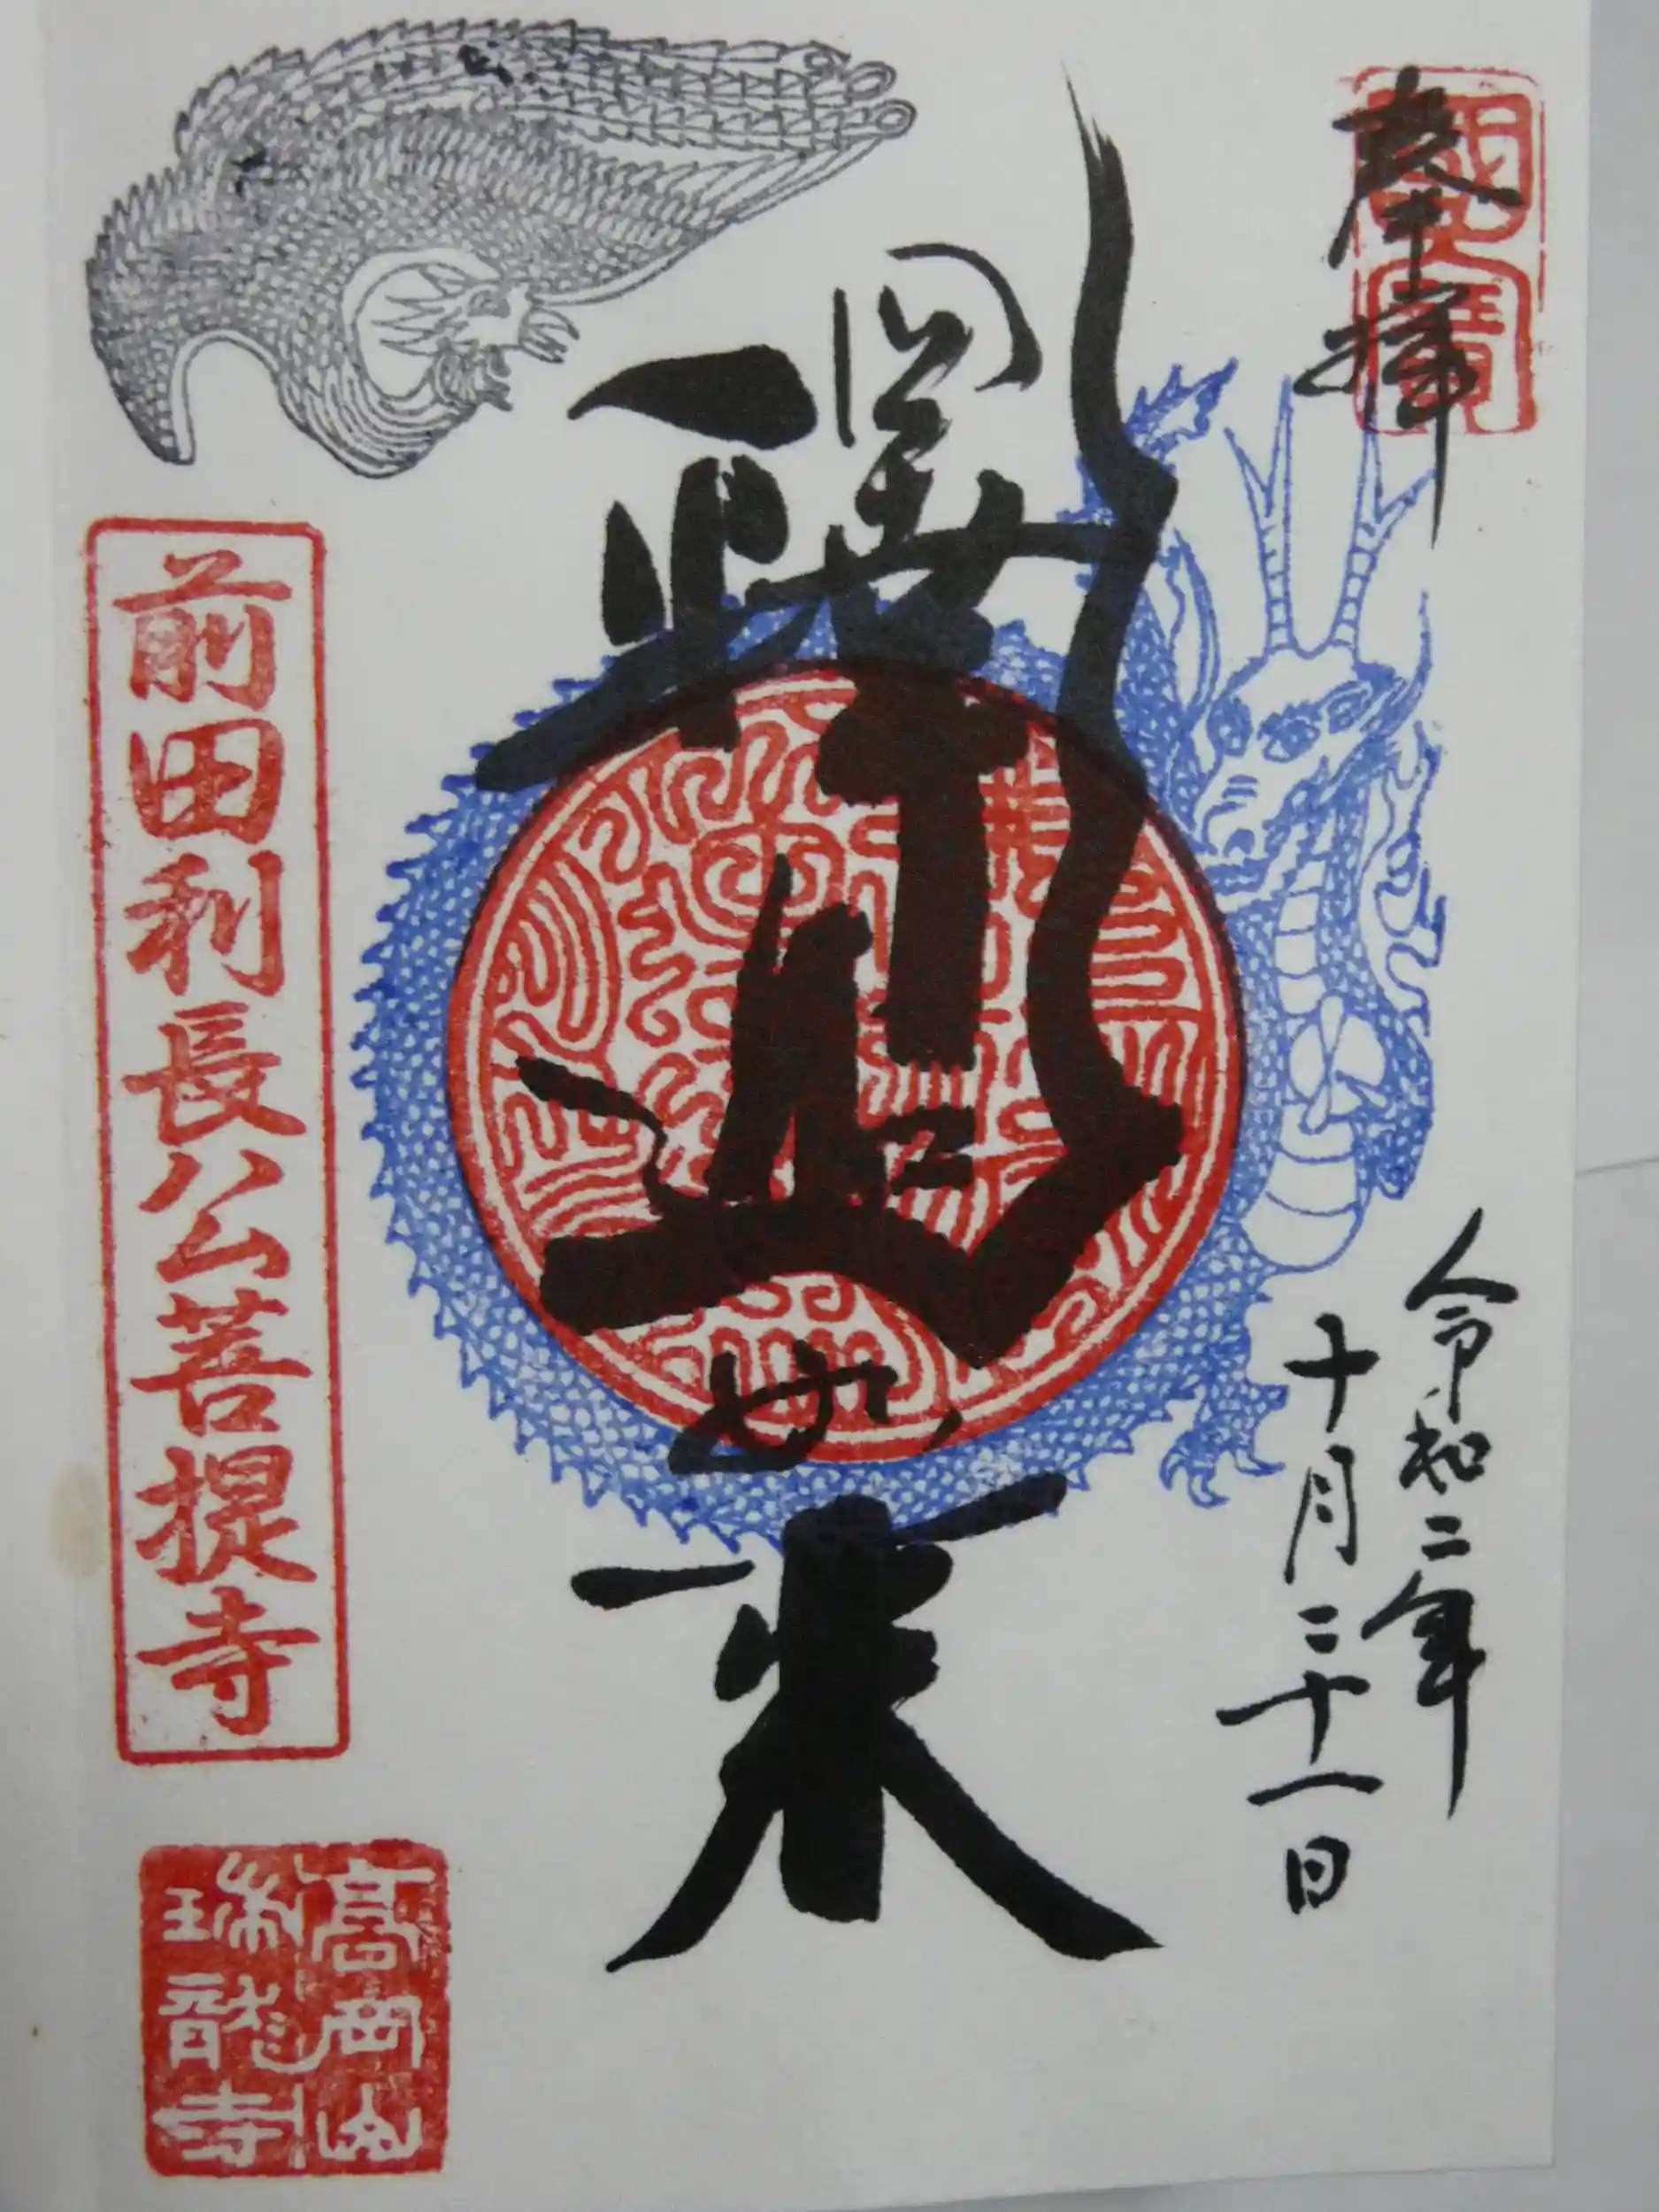 奉拝
令和二年
十月二十一日
釋迦如来
前田利長公菩提寺
高岡山
瑞龍寺